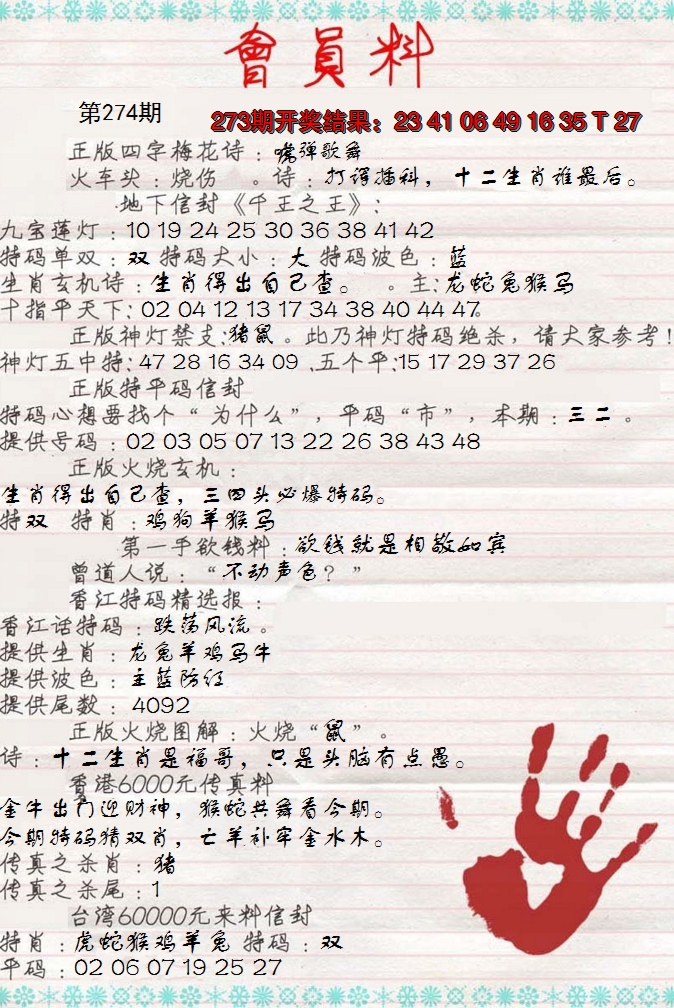 會員料
第274期
273期开奖结果：23 41 06 49 16 35 T 27
正版四字梅花诗：虎弹歌舞
火车头：烧伤 。诗：打谔插科，十二生肖谁最后。
地下信封《千王之王》：
九宝莲灯：10 19 24 25 30 36 38 41 42
特码单双：双 特码大小：大 特码波色：蓝
生肖玄机诗：生肖得出自己查。 。主：龙蛇兔猴马
十指平天下：02 04 12 13 17 34 38 40 44 47.
正版神灯禁支：猪鼠。此乃神灯特码绝杀，请大家参考！
神灯五中特：47 28 16 34 09 .五个平：15 17 29 37 26
正版特平码信封
特码心想要找个“为什么”，平码“市”，本期：三二。
提供号码：02 03 05 07 13 22 26 38 43 48
正版火烧玄机：
生肖得出自己查，三四头必爆特码。
特双 特肖：鸡狗羊猴马
第一手欲钱料：欲钱就是相敬如宾
曾道人说：“不动声色？”
香江特码精选报：
香江话特码：跌荡风流。
提供生肖：龙兔羊鸡马牛
提供波色：主蓝防红
提供尾数：4092
正版火烧图解：火烧“鼠”。
诗：十二生肖是福哥，只是头脑有点愚。
香港6000元传真料
金牛出门迎财神，猴蛇共舞看今期。
今期特码猜双肖，亡羊补牢金水木。
传真之杀肖：猪
传真之杀尾：1
台湾60000元来料信封
特肖：虎蛇猴鸡羊兔 特码：双
平码：02 06 07 19 25 27